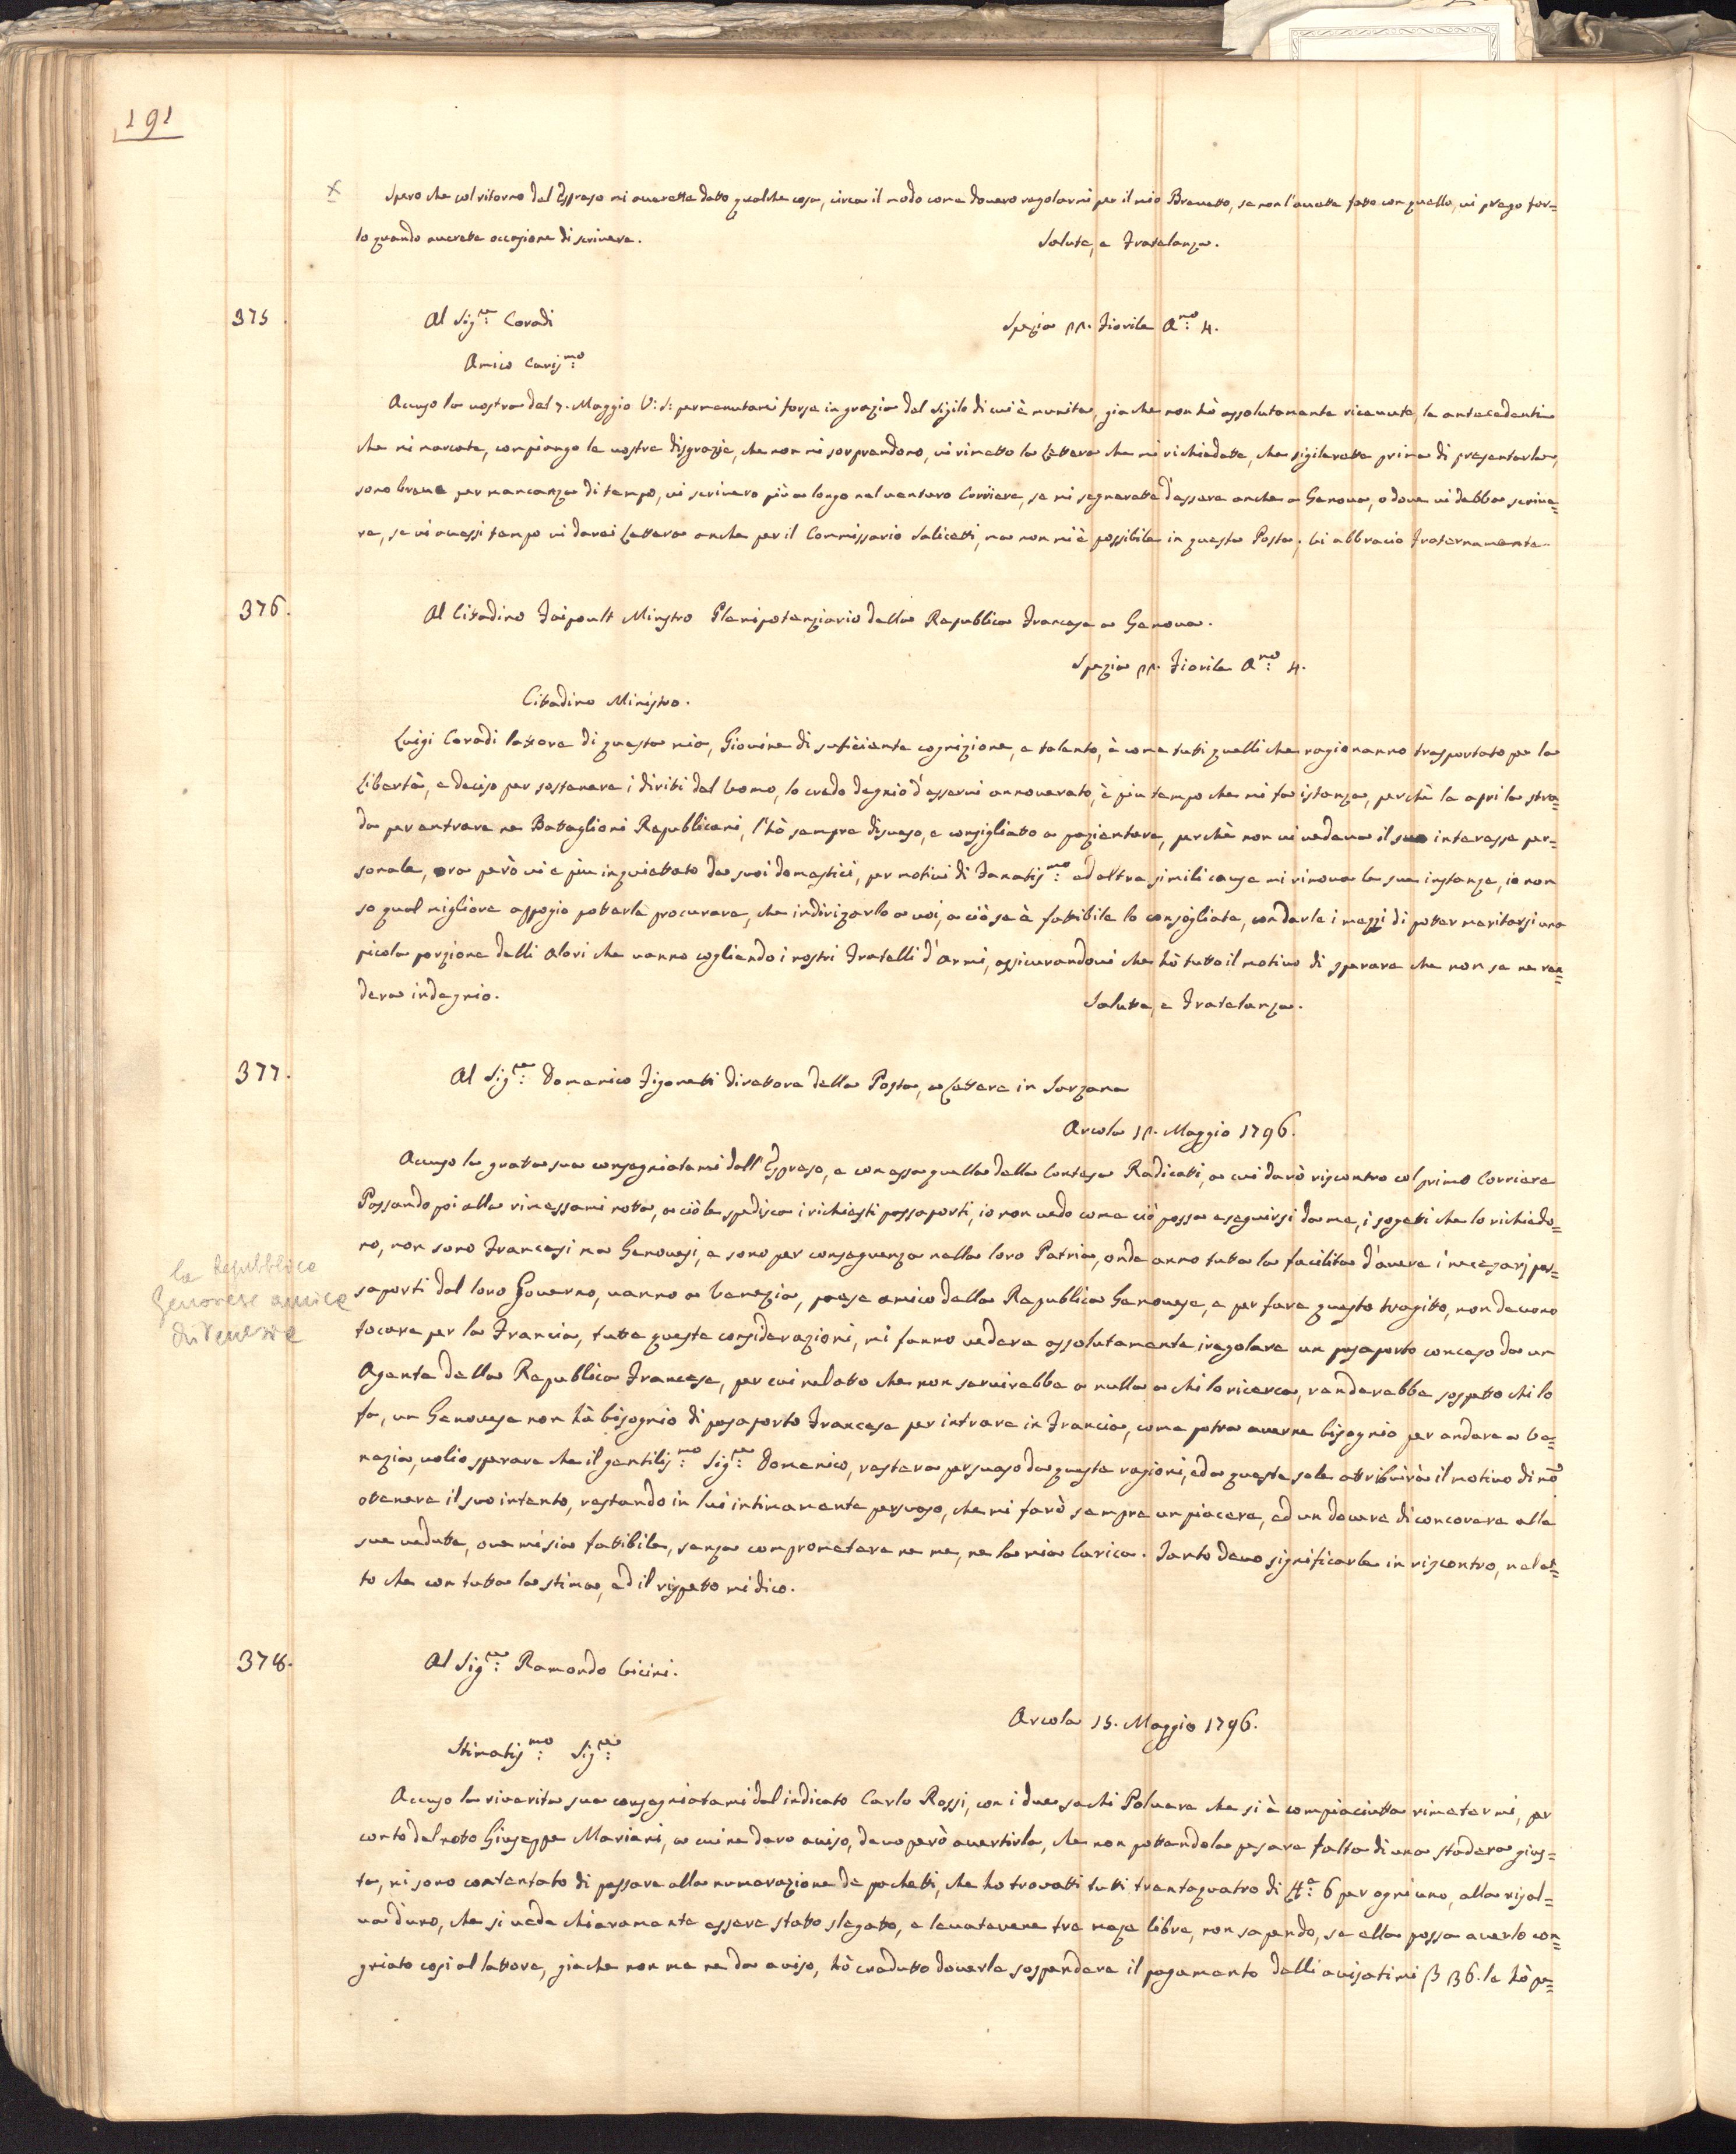 191
x Spero che col ritorno del Espreso mi averette dato qualche cosa, circa il modo come dovero regolarmi per il mio Brevetto, se non l'avette fatto con quello, vi prego far=
lo quando averette occasione di scrivere. Salute, e Fratelanza.
375. Al Sig:re Coradi Spezia 22. Fiorile A:no 4.
Amico Caris:mo
Acuso la vostra del 7. Maggio V: S: pervenutami forse in grazia del sigilo di cui è munita, gia che non hò assolutamente ricevute, le antecedenti
che mi marcate, compiango le vostre disgrazie, che non mi sorprendono, vi rimetto la Lettera che mi richiedette, che sigilarette prima di presentarla,
sono breve per mancanza di tempo, vi scrivero più a longo nel venturo Corriere, se mi segnarette d'essere anche a Genova, o dove vi debba scrive=
re, se vi avessi tempo vi darei Lettera anche per il Commissario Salicetti, ma non mi è possibile in questa Posta. Vi abbracio Fraternamente.
376. Al Citadino Faipoult Minstro Plenipotenziario della Republica Francese a Genova.
Spezia 22. Fiorile A:no 4.
Citadino Ministro.
Luigi Coradi latore di questa mia, Giovine di suficiente cognizione, e talento, è come tuti quelli che ragionanno trasportato per la
Libertà, e deciso per sostenere i diriti del Uomo, lo credo degnio d'esservi annoverato, è piu tempo che mi fa istanza, perchè le apri la stra=
da per entrare ne Battaglioni Republicani, l'hò sempre disuaso, e consigliatto a pazientare, perchè non vi vedeva il suo interesse per=
sonale, ora però vi e piu inquiettato da suoi domestici, per motivi di Fanatis:mo ed altre simili cause mi rinova le sue instanze, io non
so qual migliore appogio potterle procurare, che indirizarlo a voi, a ciò se è fattibile lo consigliate, con darle i mezzi di potter meritarsi una
picola porzione delli alori che vanno cogliendo i nostri Fratelli d'armi, assicurandovi che hò tutto il motivo di sperare che non se ne ren=
dera indegnio. Salutte, e Fratelanza.
377. Al Sig:re Domenico Figonetti direttore della Posta, a Lettere in Sarzana
Arcola 12. Maggio 1796.
Acuso la grata sua consegniatami dall'Espreso, e con essa quella della Contesa Radicatti, a cui darò riscontro col primo Corriere
Passando poi alla rimessami nota, a ciò le spedisca i richiesti passaporti, io non vedo come ciò possa eseguirsi da me, i sogetti che lo richiedo=
no, non sono Francesi ma Genovesi, e sono per conseguenza nella loro Patria, onde anno tuta la facilita d'avere i necesarj pas=
saporti dal loro Governo, vanno a Venezia, paese amico della Republica Genovese, e per fare questo tragito, non devono
la Repubblica
Genovese amica
di Venezia
tocare per la Francia, tutte queste considerazioni, mi fanno vedere assolutamente iregolare un pasaporto conceso da un
Agente della Republica Francese, per cui nel atto che non servirebbe a nulla a chi lo ricerca, renderebbe sospetto chi lo
fa, un Genovese non hà bisognio di pasaporto Francese per intrare in Francia, come potra averne bisognio per andare a Ve=
nezia, volio sperare che il gentilis:mo Sig:re Domenico, restera persuaso da queste ragioni, ed a queste sole atribuirà il motivo di nõ
otenere il suo intento, restando in lui intimamente persuaso, che mi farò sempre un piacere, ed un dovere di concorere alle
sue vedutte, ove mi sia fatibile, senza comprometere ne me, ne la mia Carica. Tanto devo significarle in riscontro, nel at=
to che con tutta la stima, ed il rispetto mi dico.
378. Al Sig:re Ramondo Vicini.
Arcola 15. Maggio 1796.
Stimatis:mo Sig:re
Acuso la riverita sua consegniatami dal indicato Carlo Rossi, con i due sachi Polvere che si è compiaciutta rimetermi, per
conto del noto Giuseppe Mariani, a cui ne daro aviso, devo però avertirla, che non pottandola pesare falta di una stadera gius=
ta, mi sono contentato di passare alla numerazione de pachetti, che ho trovatti tutti trentaquatro di 6 per ogni uno, alla riser=
va d'uno, che si vede chiaramente essere statto slegatto, e levatevene tre meze libre, non sapendo, se ella possa averlo con=
gniato cosi al lattore, giache non me ne da aviso, hò credutto doverle sospendere il pagamento delli avisatimi 36. le hò pe=